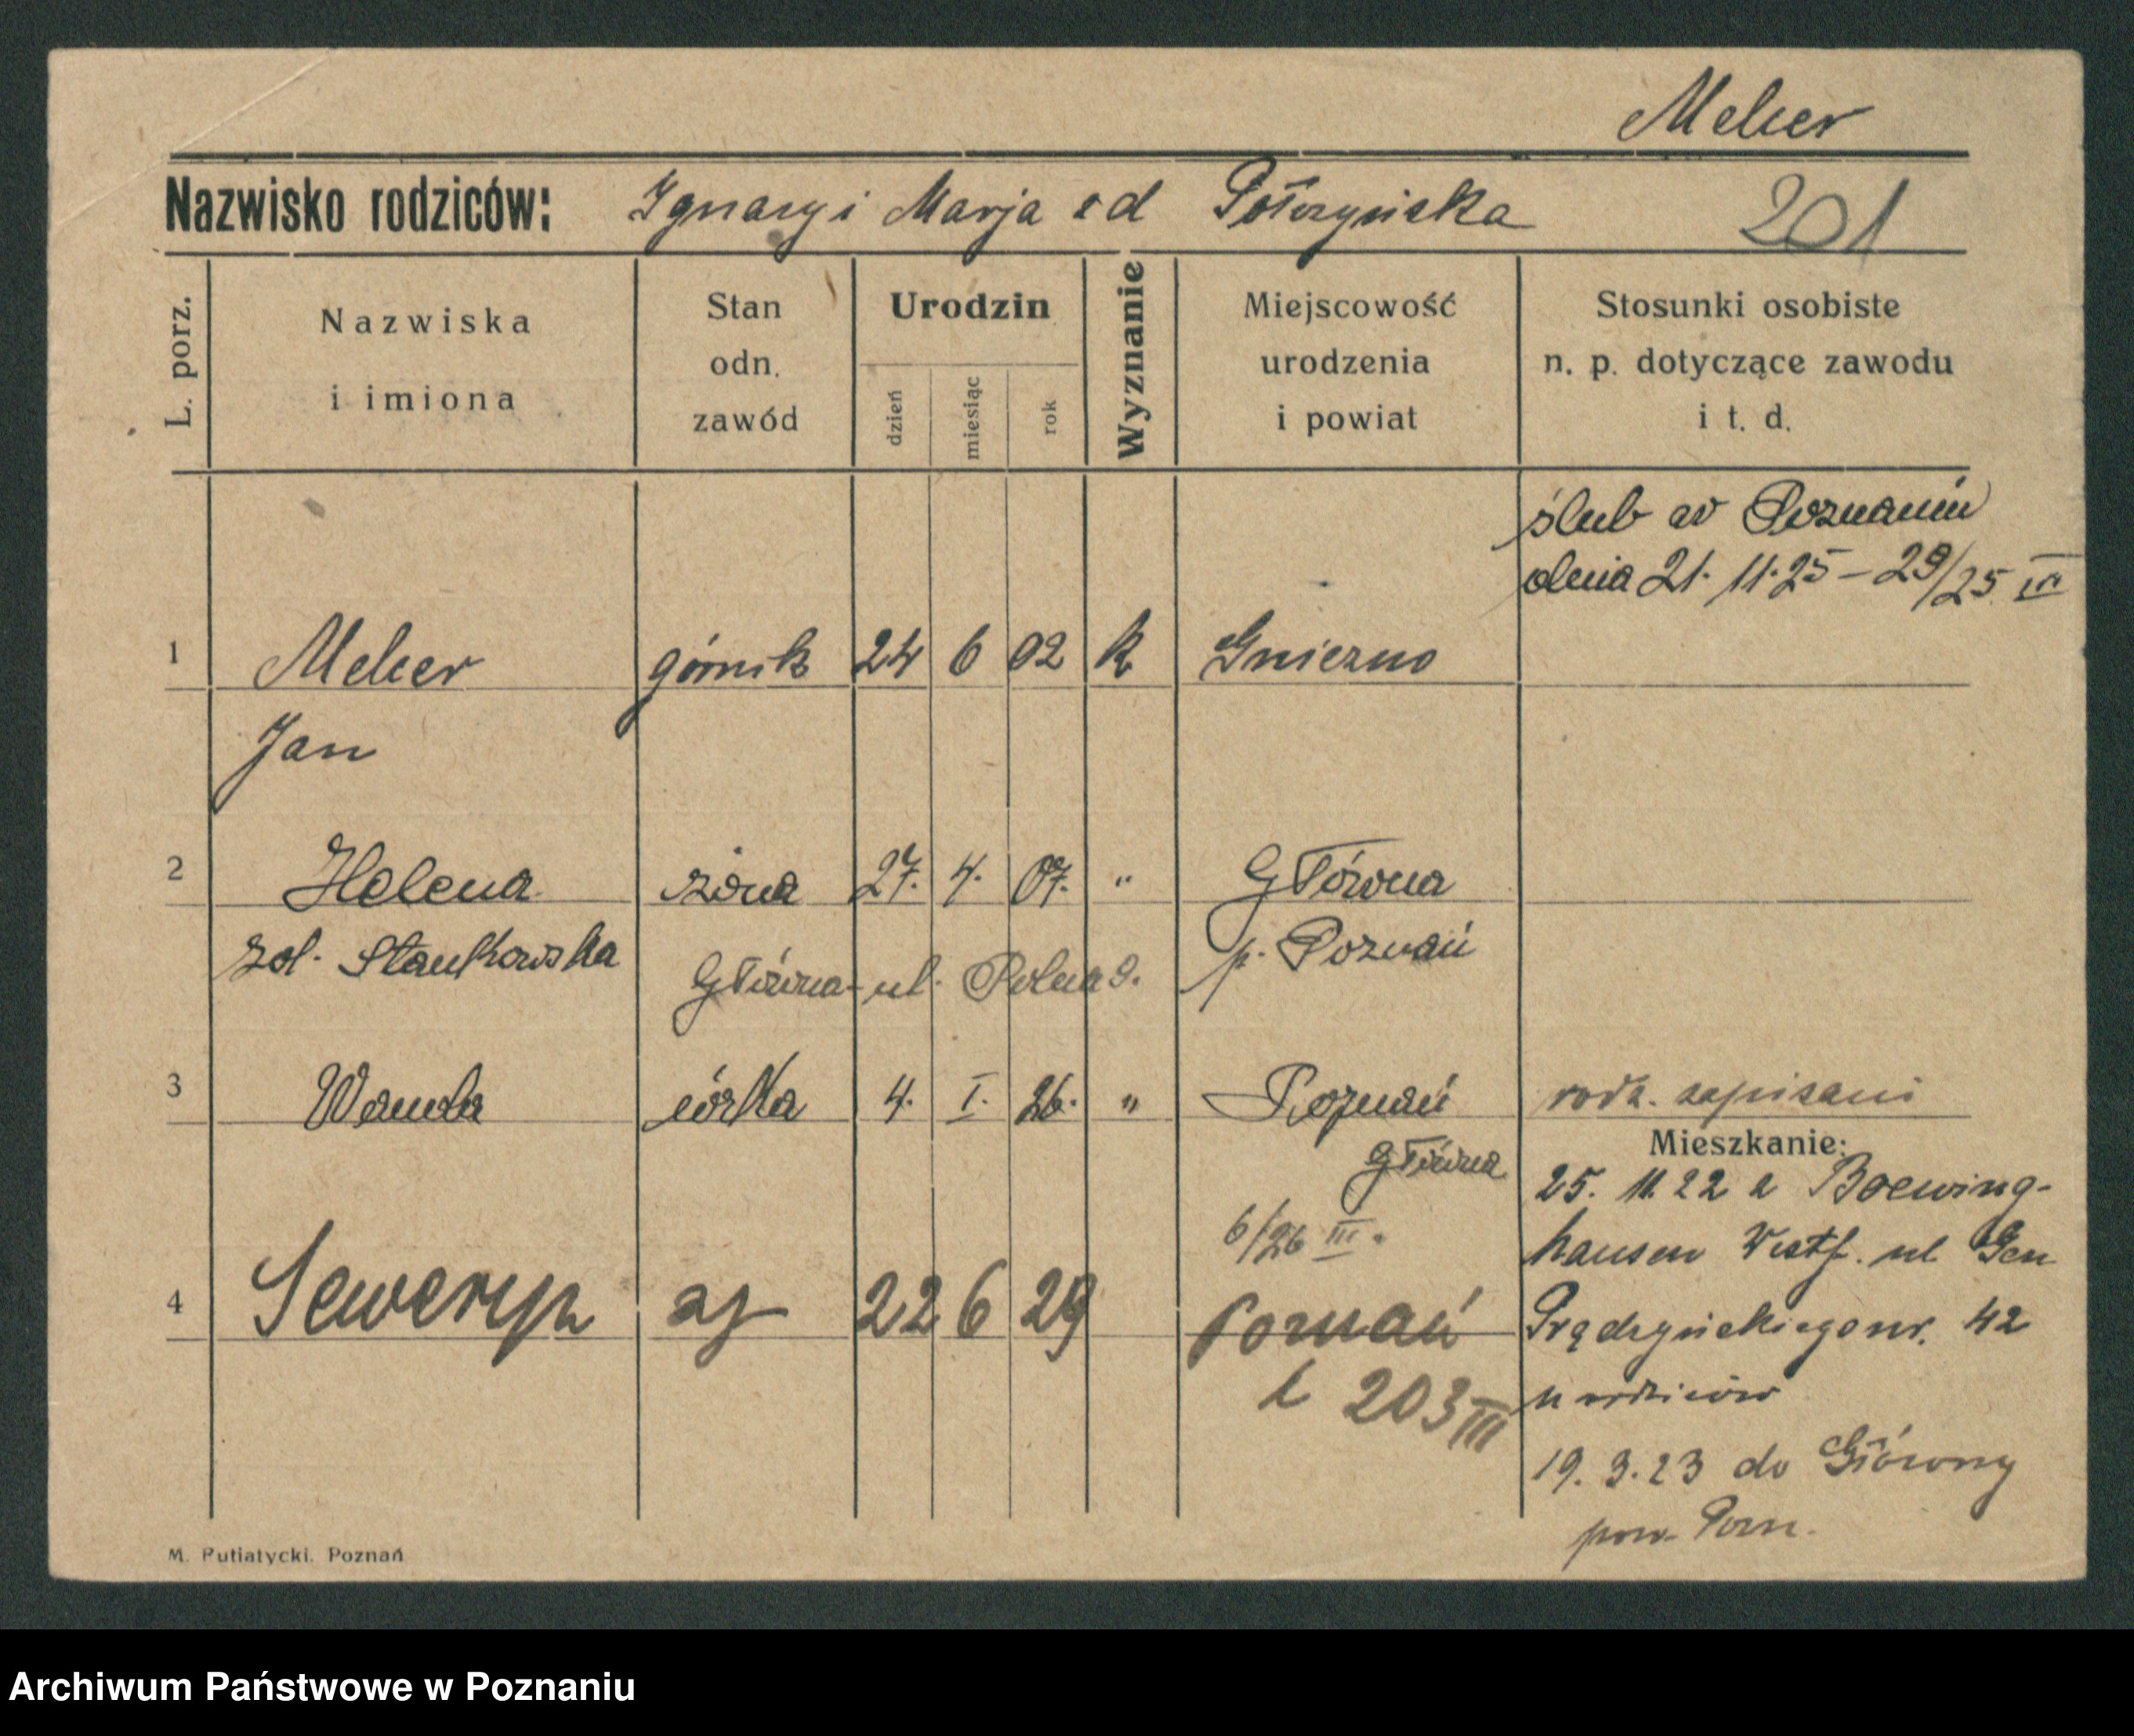 Melcer
Nazwisko rodziców: Ignacy i Marja Połczyńska
201
L. porz.
Nazwiska
i imiona
Stan
odn.
zawód
Urodzin
dzień
miesiąc
rok
Wyznanie
Miejscowość
urodzenia
i powiat
Stosunki osobiste
n. p. dotyczące zawodu
i t. d.
ślub w Poznaniu
dnia 21. 11. 25 – 29/25 III
1 Melcer górnik 24 6 02 k Gniezno
Jan
2 Helena żona 27. 4. 07. " Główna
p. Poznań
zol. Stankowska
Główna - ul. Polna 9.
3 Wanda córka 4. I. 26. " Poznań rodz. zapisani
Główna
6/26 III.
4 Seweryn 22 6 29 Poznań
L 203 III
Mieszkanie:
25. 11. 22 z Boewing-
hausen Westf. ul Gen
Prądzyńskiego nr. 42
u rodziców
19. 3. 23 do Główny
pow. Pozn.
M. Putiatycki. Poznań
Archiwum Państwowe w Poznaniu